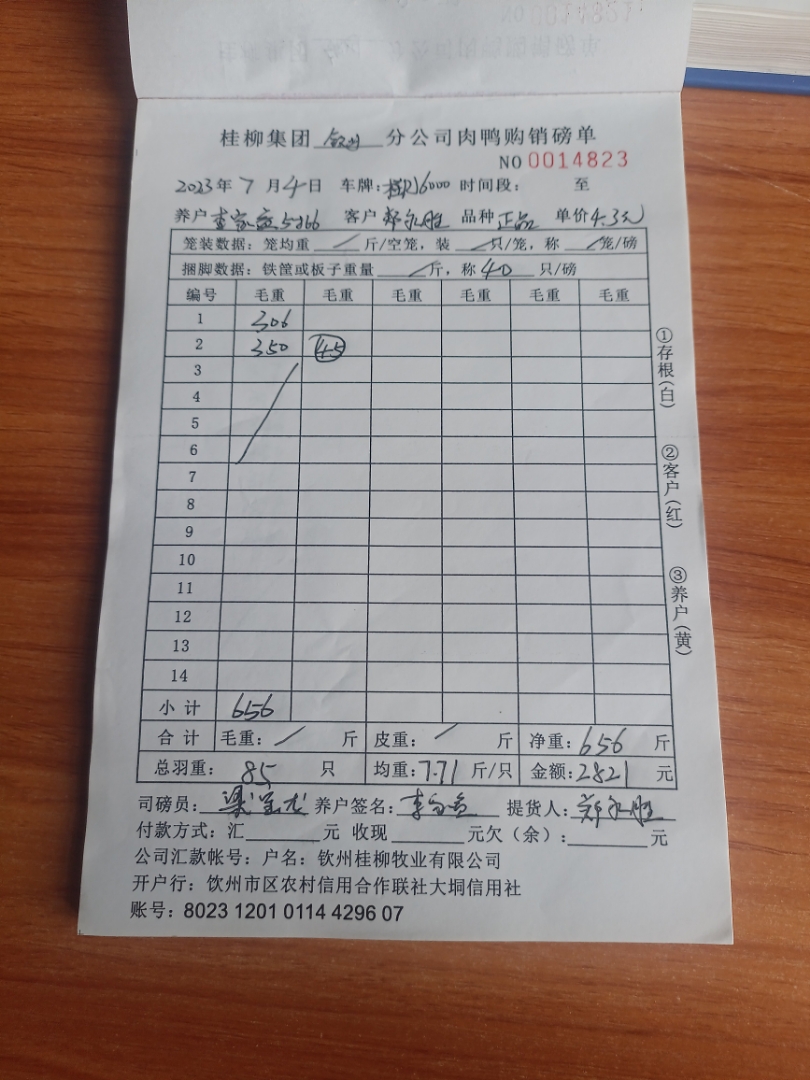 桂柳集团 钦州 分公司肉鸭购销磅单
NO 0014823
2023年 7 月 4 日 车牌: 6000 时间段: 至
养户 客户 郑永胜 品种 正品 单价 4.3元
笼装数据: 笼均重 / 斤/空笼, 装 / 只/笼, 称 / 笼/磅
捆脚数据: 铁筐或板子重量 / 斤, 称 40 只/磅
编号 毛重 毛重 毛重 毛重 毛重 毛重
1 306
2 350 45
3
4
5
6
7
8
9
10
11
12
13
14
小 计 656
合 计 毛重: / 斤 皮重: / 斤 净重: 656 斤
总羽重: 85 只 均重: 7.71 斤/只 金额: 2821 元
司磅员: 养户签名: 提货人: 郑永胜
付款方式: 汇 元 收现 元欠（余）: 元
公司汇款帐号: 户名: 钦州桂柳牧业有限公司
开户行: 饮州市区农村信用合作联社大垌信用社
账号: 8023 1201 0114 4296 07
①存根(白)
②客户(红)
③养户(黄)